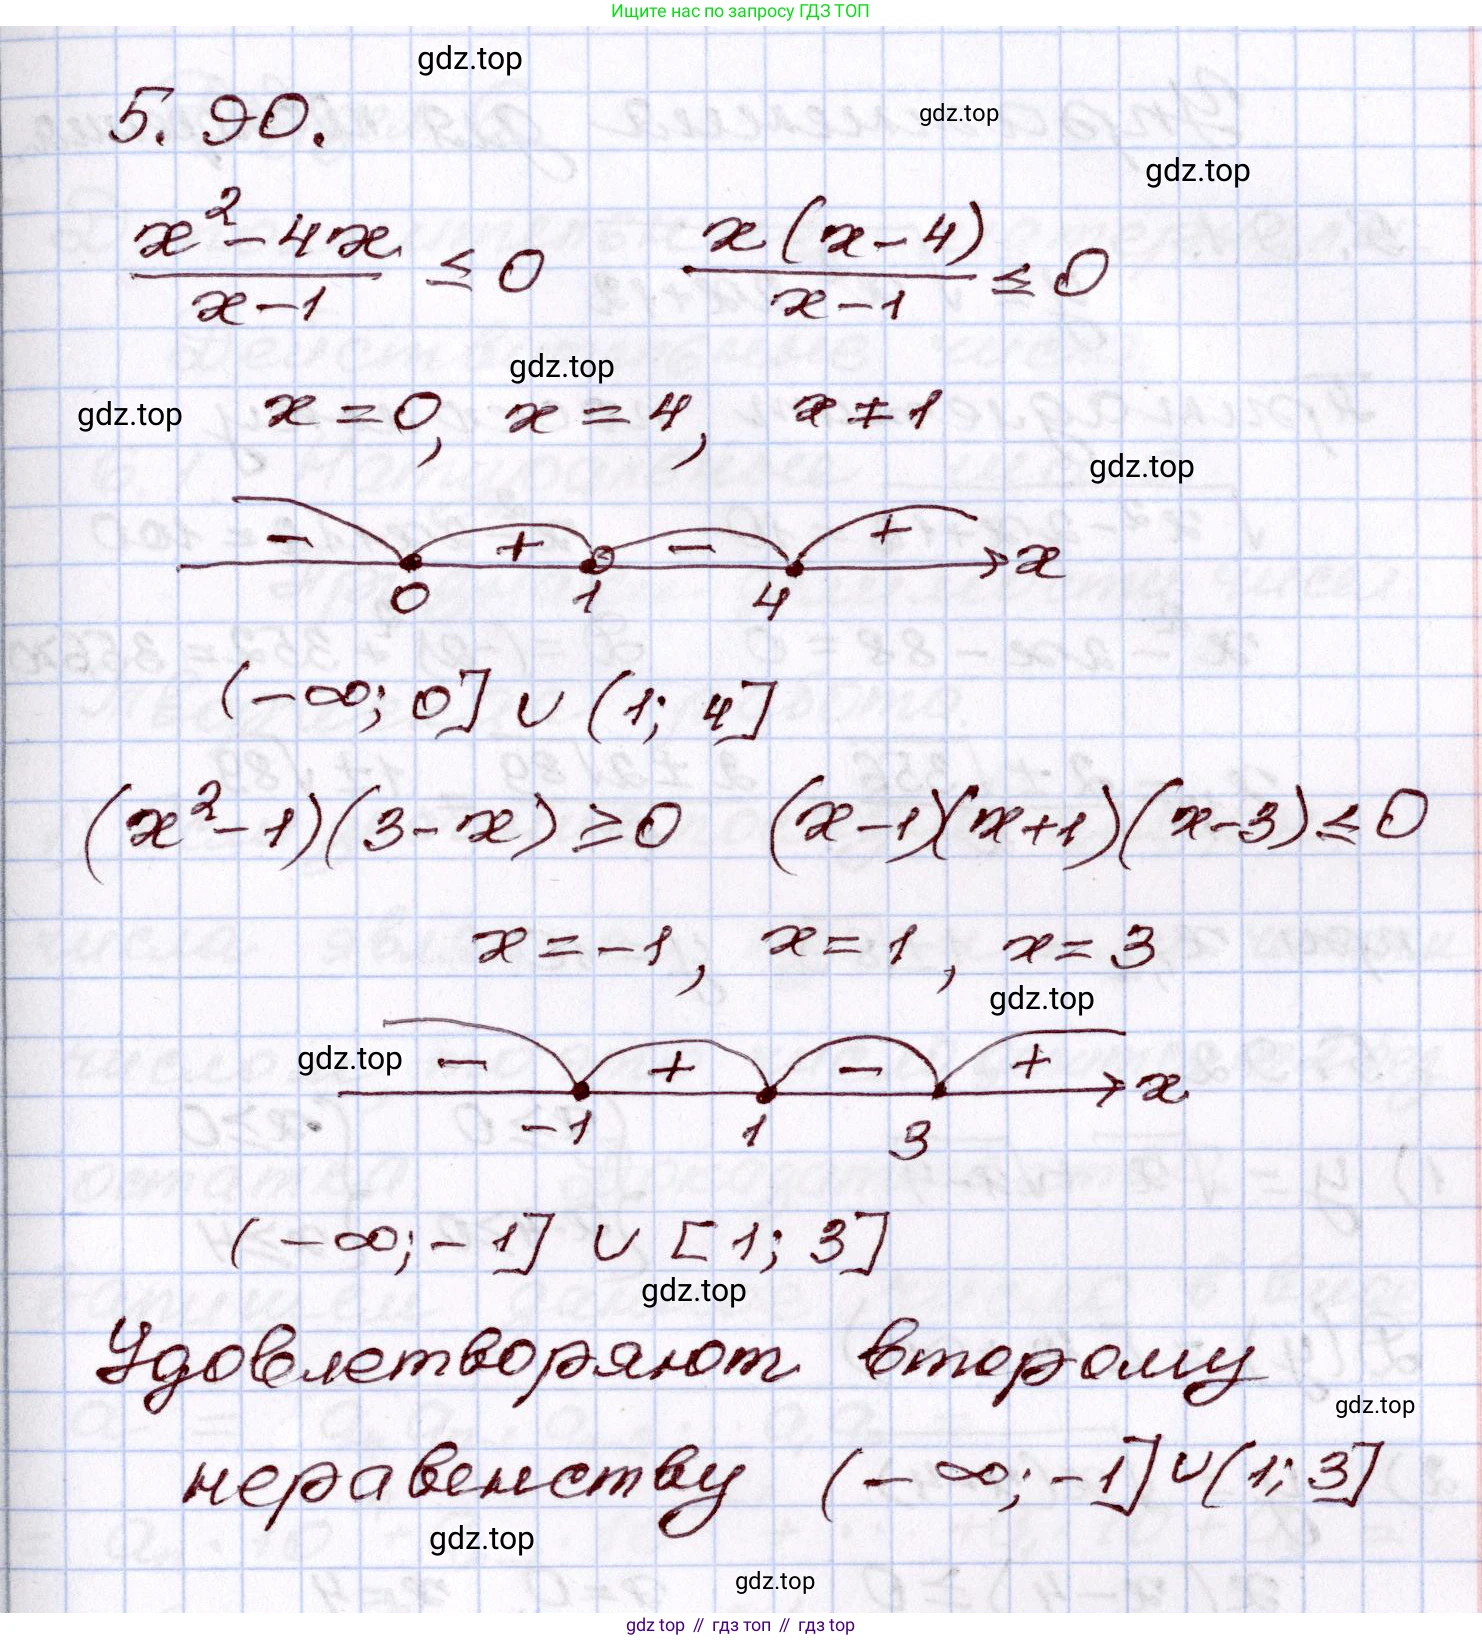 Ищите нас по запросу ГДЗ ТОП
gdz.top
5.90.
gdz.top
gdz.top
(x²-4x)/(x-1) ≤ 0   x(x-4)/(x-1) ≤ 0
gdz.top
gdz.top
x = 0, x = 4, x ≠ 1
gdz.top
- + - +
0 1 4 x
(-∞; 0] ∪ (1; 4]
(x²-1)(3-x) ≥ 0   (x-1)(x+1)(x-3) ≤ 0
x = -1, x = 1, x = 3
gdz.top
gdz.top
- + - +
-1 1 3 x
(-∞; -1] ∪ [1; 3]
gdz.top
Удовлетворяют второму
gdz.top
неравенству (-∞; -1] ∪ (1; 3]
gdz.top
gdz.top
gdz top // гдз топ // гдз top